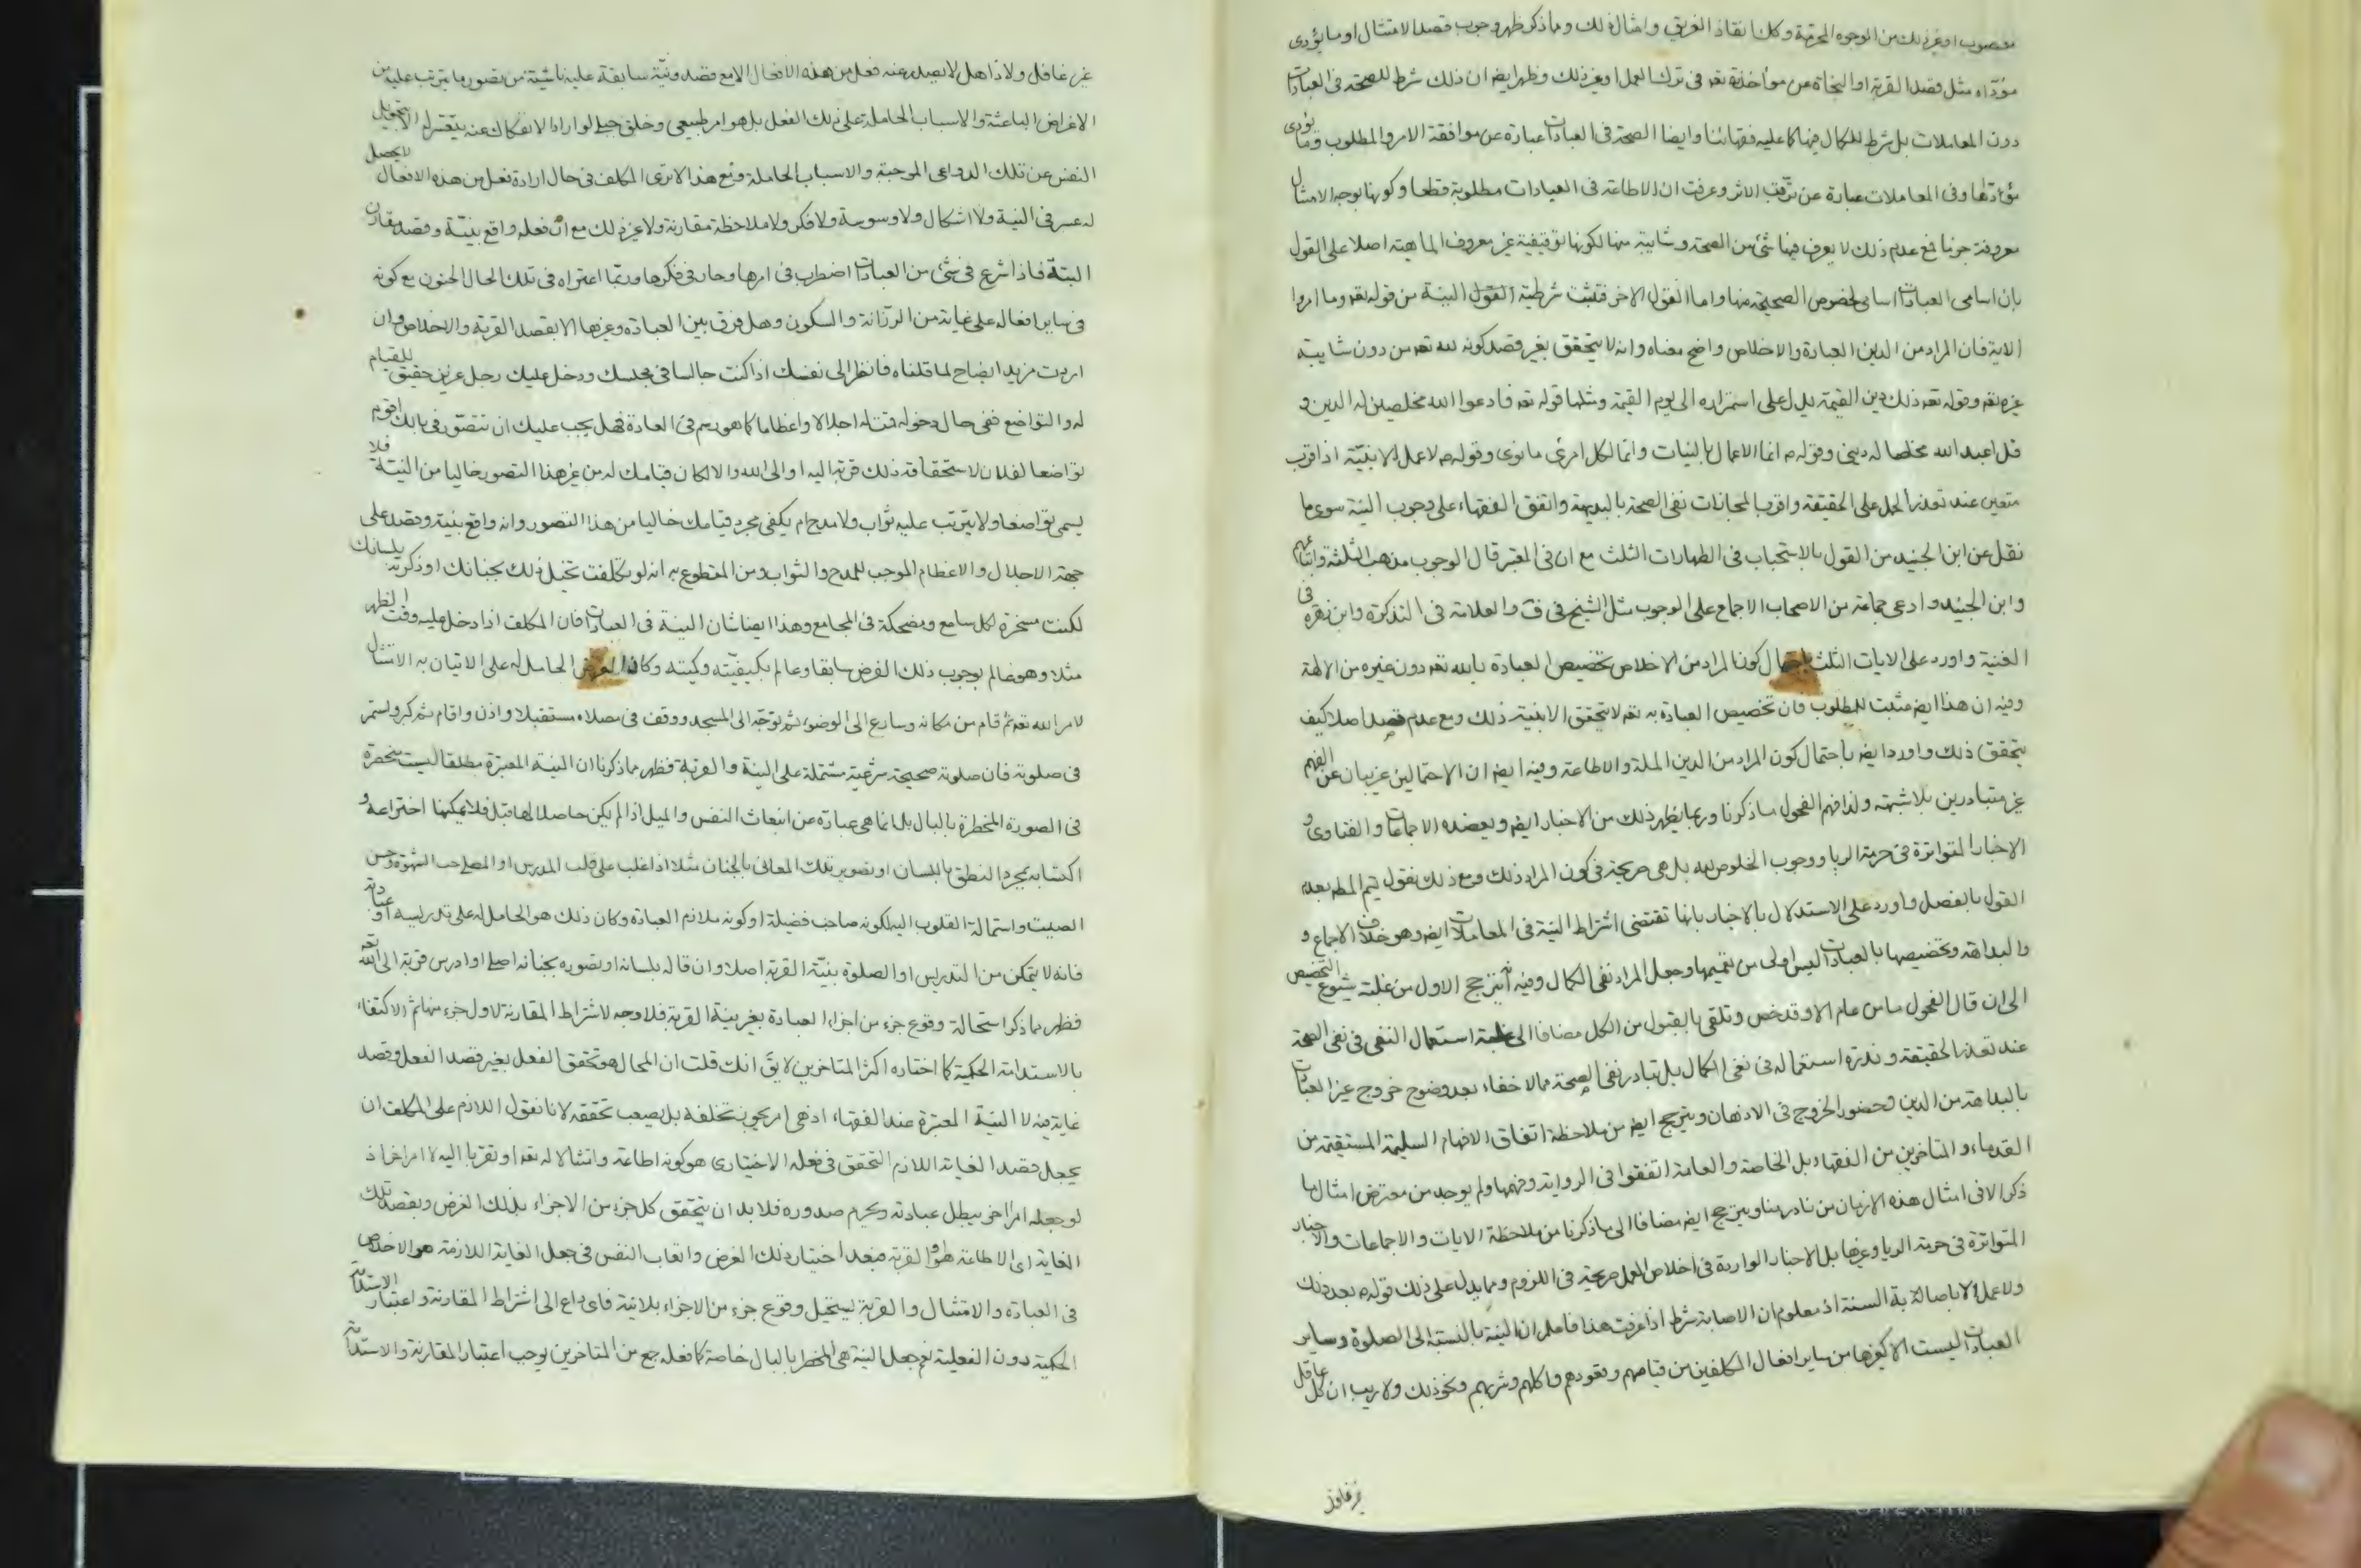 مغصوب او غير ذلك من الوجوه المحرمة وكذا انقاذ الغريق وامثال ذلك ومما ذكر ظهر وجوب قصد الامتثال او ما يؤدى
مؤداه مثل قصد القربة او النجاة عن مؤاخذته تعه فى ترك العمل او غير ذلك وظهر ايضا ان ذلك شرط للصحة فى العبادات
دون المعاملات بل شرط للكمال فيها كما عليه فقهائنا وايضا الصحة فى العبادات عبارة عن موافقة الامر والمطلوب وما يؤدى
مؤداها وفى المعاملات عبارة عن ترتب الاثر وعرفت ان الاطاعة فى العبادات مطلوبة قطعا وكونها بوجه الامتثال
معروفة جزما فمع عدم ذلك لا يعرف فيها شئ من الصحة وشايبة منها لكونها توقيفية غير معروف الماهية اصلا على القول
بان اسامى العبادات اسامى لخصوص الصحيحة منها واما القول الاخر فتثبت شرطية القول النية من قوله تعه وما امروا
الاية فان المراد من الدين العبادة والاخلاص واضح معناه وانه لا يتحقق بغير قصد كونه لله تعه من دون شايبة
غيره تعه وقوله تعه ذلك دين القيمة يدل على استمراره الى يوم القيمة ومثلها قوله تعه فادعوا الله مخلصين له الدين و
قل اعبد الله مخلصا له دينى وقوله ص انما الاعمال بالنيات وانما لكل امرئ ما نوى وقوله ص لا عمل الا بنية اذ اقرب
متعين عند تعذر الحمل على الحقيقة واقرب المجازات نفى الصحة بالبديهة واتفق الفقهاء على وجوب النية سوى ما
نقل عن ابن الجنيد من القول بالاستحباب فى الطهارات الثلث مع ان فى المعتبر قال الوجوب مذهب الثلثة واتباعهم
وابن الجنيد وادعى جماعة من الاصحاب الاجماع على الوجوب مثل الشيخ فى ف والعلامة فى التذكرة وابن زهرة فى
الغنية واورد على الايات الثلث باحتمال كون المراد من الاخلاص تخصيص العبادة بالله تعه دون غيره من الالهة
وفيه ان هذا ايضا مثبت للمطلوب فان تخصيص العبادة به تعه لا يتحقق الا بنية ذلك ومع عدم قصد اصلا كيف
يتحقق ذلك واورد ايضا باحتمال كون المراد من الدين الملة والاطاعة وفيه ايضا ان الاحتمالين غريبان عن الفهم
غير متبادرين بلا شبهة ولذا فهم الفحول ما ذكرنا وربما يظهر ذلك من الاخبار ايضا ويعضده الاجماعات والفتاوى و
الاخبار المتواترة فى حرمة الريا ووجوب الخلوص لله بل هى صريحة فى كون المراد ذلك ومع ذلك نقول تيم المط بعدم
القول بالفصل واورد على الاستدلال بالاخبار بانها تقتضى اشتراط النية فى المعاملات ايضا وهو خلاف الاجماع و
والبداهة وتخصيصها بالعبادات ليس اولى من تعميمها وجعل المراد نفى الكمال وفيه انه يترجح الاول من غلبة شيوع التخصيص
الى ان قال الفحول ما من عام الا وقد خص وتلقى بالقبول من الكل مضافا الى غلبة استعمال النفى فى نفى الصحة
عند تعذر الحقيقة وندرة استعماله فى نفى الكمال بل تبادر نفى الصحة مما لا خفاء بعد وضوح خروج غير العبادات
بالبداهة من الدين وحضور الخروج فى الاذهان ويترجح ايضا من ملاحظة اتفاق الافهام السليمة المستقيمة من
القدماء والمتاخرين من الفقهاء بل الخاصة والعامة اتفقوا فى الرواية وفهمها ولم يوجد من معترض امثال ما
ذكر الا فى امثال هذه الازمان من نادر منا ويترجح ايضا مضافا الى ما ذكرنا من ملاحظة الايات والاجماعات والاخبار
المتواترة فى حرمة الريا وغيرها بل الاخبار الواردة فى اخلاص العمل صريحة فى اللزوم ومما يدل على ذلك قوله ص بعد ذلك
ولا عمل الا باصابة السنة اذ معلوم ان الاصابة شرط اذا عرفت هذا فاعلم ان النية بالنسبة الى الصلوة وساير
العبادات ليست الا كغيرها من ساير افعال المكلفين من قيامهم وقعودهم واكلهم وشربهم ونحو ذلك ولا ريب ان كل عاقل
غير غافل
غير غافل ولا ذاهل لا يصدر عنه فعل من هذه الافعال الا مع قصد ونية سابقة عليه ناشية من تصور ما يترتب عليه من
الاغراض الباعثة والاسباب الحاملة على ذلك الفعل بل هو امر طبيعى وخلق جبلى لو اراد الانفكاك عنه يتعسر له الا بتحويل
النفس عن تلك الدواعى الموجبة والاسباب الحاملة ومع هذا لا ترى المكلف فى حال ارادة فعل من هذه الافعال لا يحصل
له عسر فى النية ولا اشكال ولا وسوسة ولا فكر ولا ملاحظة مقارنة ولا غير ذلك مع ان فعله واقع بنية وقصد مقارن
البتة فاذا شرع فى شئ من العبادات اضطرب فى امرها وحار فى فكرها وربما اعتراه فى تلك الحال الجنون مع كونه
فى ساير افعاله على غاية من الرزانة والسكون وهل فرق بين العبادة وغيرها الا بقصد القربة والاخلاص وان
اردت مزيد ايضاح لما قلناه فانظر الى نفسك اذا كنت جالسا فى مجلسك ودخل عليك رجل عزيز حقيق للقيام
له والتواضع ففى حال دخوله قمت له اجلالا واعظاما كما هو رسم فى العادة فهل يجب عليك ان تتصور فى بالك اقوم
تواضعا لفلان لاستحقاقه ذلك قربة اليه او الى الله والا لكان قيامك له من غير هذا التصور خاليا من النية فلا
يسمى تواضعا ولا يترتب عليه ثواب ولا مدح ام يكفى مجرد قيامك خاليا من هذا التصور وانه واقع بنية وقصد على
جهة الاجلال والاعظام الموجب للمدح والثواب ومن المقطوع به انه لو تكلفت تخيل ذلك بجنانك او ذكرته بلسانك
لكنت مسخرة لكل سامع ومضحكة فى المجامع وهذا ايضا شان النية فى العبادات فان المكلف اذا دخل عليه وقت الظهر
مثلا وهو عالم بوجوب ذلك الفرض سابقا وعالم بكيفيته وكميته وكان الغرض الحامل له على الاتيان به الامتثال
لامر الله تعه ثم قام من مكانه وسارع الى الوضوء ثم توجه الى المسجد ووقف فى مصلاه مستقبلا واذن واقام ثم كبر واستمر
فى صلوته فان صلوته صحيحة شرعية مشتملة على النية والقربة فظهر مما ذكرنا ان النية المعتبرة مطلقا ليست منحصرة
فى الصورة المخطرة بالبال بل انما هى عبارة عن انبعاث النفس والميل اذا لم يكن حاصلا لها قبل فلا يمكنها اختراعه و
اكتسابه بمجرد النطق باللسان او تصوير تلك المعانى بالجنان مثلا اذا غلب على قلب المدرس او المصلى حب الشهرة وحسن
الصيت واستمالة القلوب اليه لكونه صاحب فضيلة او كونه ملازم العبادة وكان ذلك هو الحامل له على تدريسه او عبادته
فانه لا يتمكن من التدريس او الصلوة بنية القربة اصلا وان قاله بلسانه او تصوره بجنانه اصلى او ادرس قربة الى الله تعه
فظهر مما ذكر استحالة وقوع جزء من اجزاء العبادة بغير نية القربة فلا وجه لاشتراط المقارنة لاول جزء منها ثم الاكتفاء
بالاستدامة الحكمية كما اختاره اكثر المتاخرين لا يق انك قلت ان المحال هو تحقق الفعل بغير قصد الفعل وقصد
غاية منه لا النية المعتبرة عند الفقهاء اذ هى امر يجوز تخلفه بل يصعب تحققه لانا نقول اللازم على المكلف ان
يجعل قصد الغاية اللازم التحقق فى فعله الاختيارى هو كونه اطاعة وامتثالا له تعه او تقربا اليه لا امرا اخر اذ
لو جعله امرا اخر يبطل عبادته ويحرم صدوره فلا بد ان يتحقق كل جزء من الاجزاء بذلك الغرض وبقصد تلك
الغاية اى الاطاعة او القربة فبعد اختيار ذلك الغرض واتعاب النفس فى جعل الغاية اللازمة هو الاخلاص
فى العبادة والامتثال والقربة يستحيل وقوع جزء من الاجزاء بلا نية فاى داع الى اشتراط المقارنة واعتبار الاستدامة
الحكمية دون الفعلية نعم جعل النية هى المخطر بالبال خاصة كما فعله جمع من المتاخرين يوجب اعتبار المقارنة والاستدامة